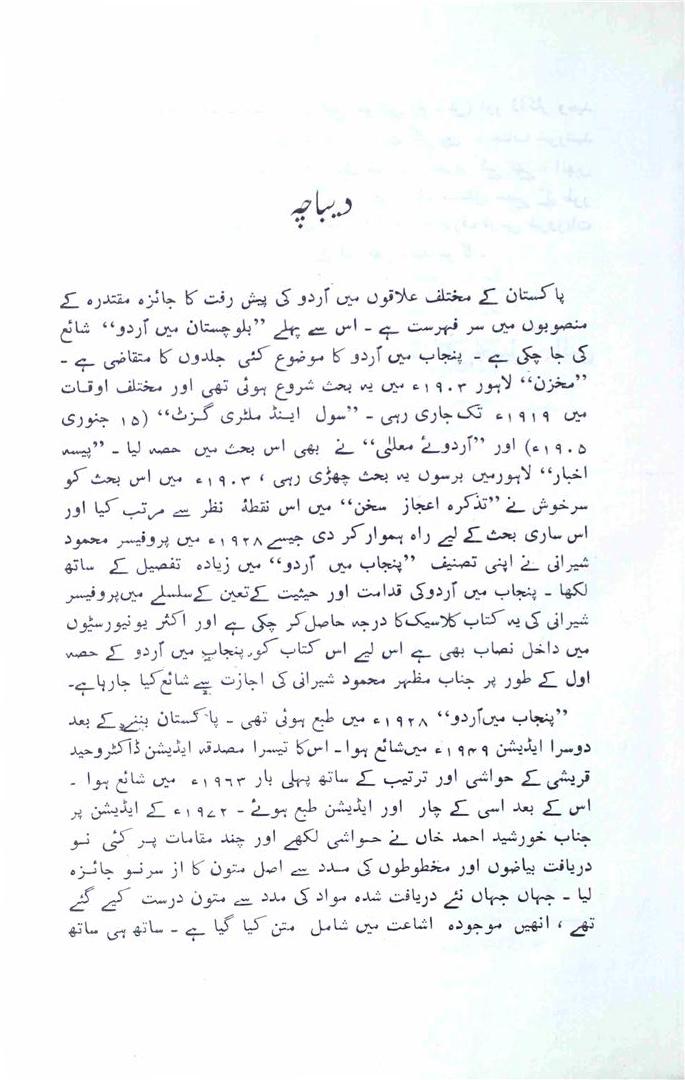 دیباچہ
پاکستان کے مختلف علاقوں میں اُردو کی پیش رفت کا جائزہ مقتدرہ کے
منصوبوں میں سر فہرست ہے ۔ اس سے پہلے ”بلوچستان میں اُردو“ شائع
کی جا چکی ہے ۔ پنجاب میں اُردو کا موضوع کئی جلدوں کا متقاضی ہے ۔
”مخزن“ لاہور ۱۹۰۳ء میں یہ بحث شروع ہوئی تھی اور مختلف اوقات
میں ۱۹۱۹ء تک جاری رہی ۔ ”سول اینڈ ملٹری گزٹ“ (۱۵ جنوری
۱۹۰۵ء) اور ”اُردوئے معلیٰ“ نے بھی اس بحث میں حصہ لیا ۔ ”پیسہ
اخبار“ لاہورمیں برسوں یہ بحث چھڑی رہی ، ۱۹۰۳ء میں اس بحث کو
سرخوش نے ”تذکرہ اعجاز سخن“ میں اس نقطۂ نظر سے مرتب کیا اور
اس ساری بحث کے لیے راہ ہموار کر دی جیسے ۱۹۲۸ء میں پروفیسر محمود
شیرانی نے اپنی تصنیف ”پنجاب میں اُردو“ میں زیادہ تفصیل کے ساتھ
لکھا ۔ پنجاب میں اُردوکی قدامت اور حیثیت کےتعین کےسلسلے میں پروفیسر
شیرانی کی یہ کتاب کلاسیک کا درجہ حاصل کر چکی ہے اور اکثر یونیورسٹیوں
میں داخل نصاب بھی ہے اس لیے اس کتاب کو پنجاب میں اُردو کے حصہ
اول کے طور پر جناب مظہر محمود شیرانی کی اجازت سے شائع کیا جارہاہے۔
”پنجاب میں اُردو“ ۱۹۲۸ء میں طبع ہوئی تھی ۔ پاکستان بننے کے بعد
دوسرا ایڈیشن ۱۹۴۹ء میں شائع ہوا۔ اس کا تیسرا مصدقہ ایڈیشن ڈاکٹر وحید
قریشی کے حواشی اور ترتیب کے ساتھ پہلی بار ۱۹۶۳ء میں شائع ہوا ۔
اس کے بعد اسی کے چار اور ایڈیشن طبع ہوئے۔ ۱۹۷۲ء کے ایڈیشن پر
جناب خورشید احمد خاں نے حواشی لکھے اور چند مقامات پر کئی نو
دریافت بیاضوں اور مخطوطوں کی مدد سے اصل متون کا از سرنو جائزہ
لیا ۔ جہاں جہاں نئے دریافت شدہ مواد کی مدد سے متون درست کیے گئے
تھے ، انھیں موجودہ اشاعت میں شامل متن کیا گیا ہے ۔ ساتھ ہی ساتھ